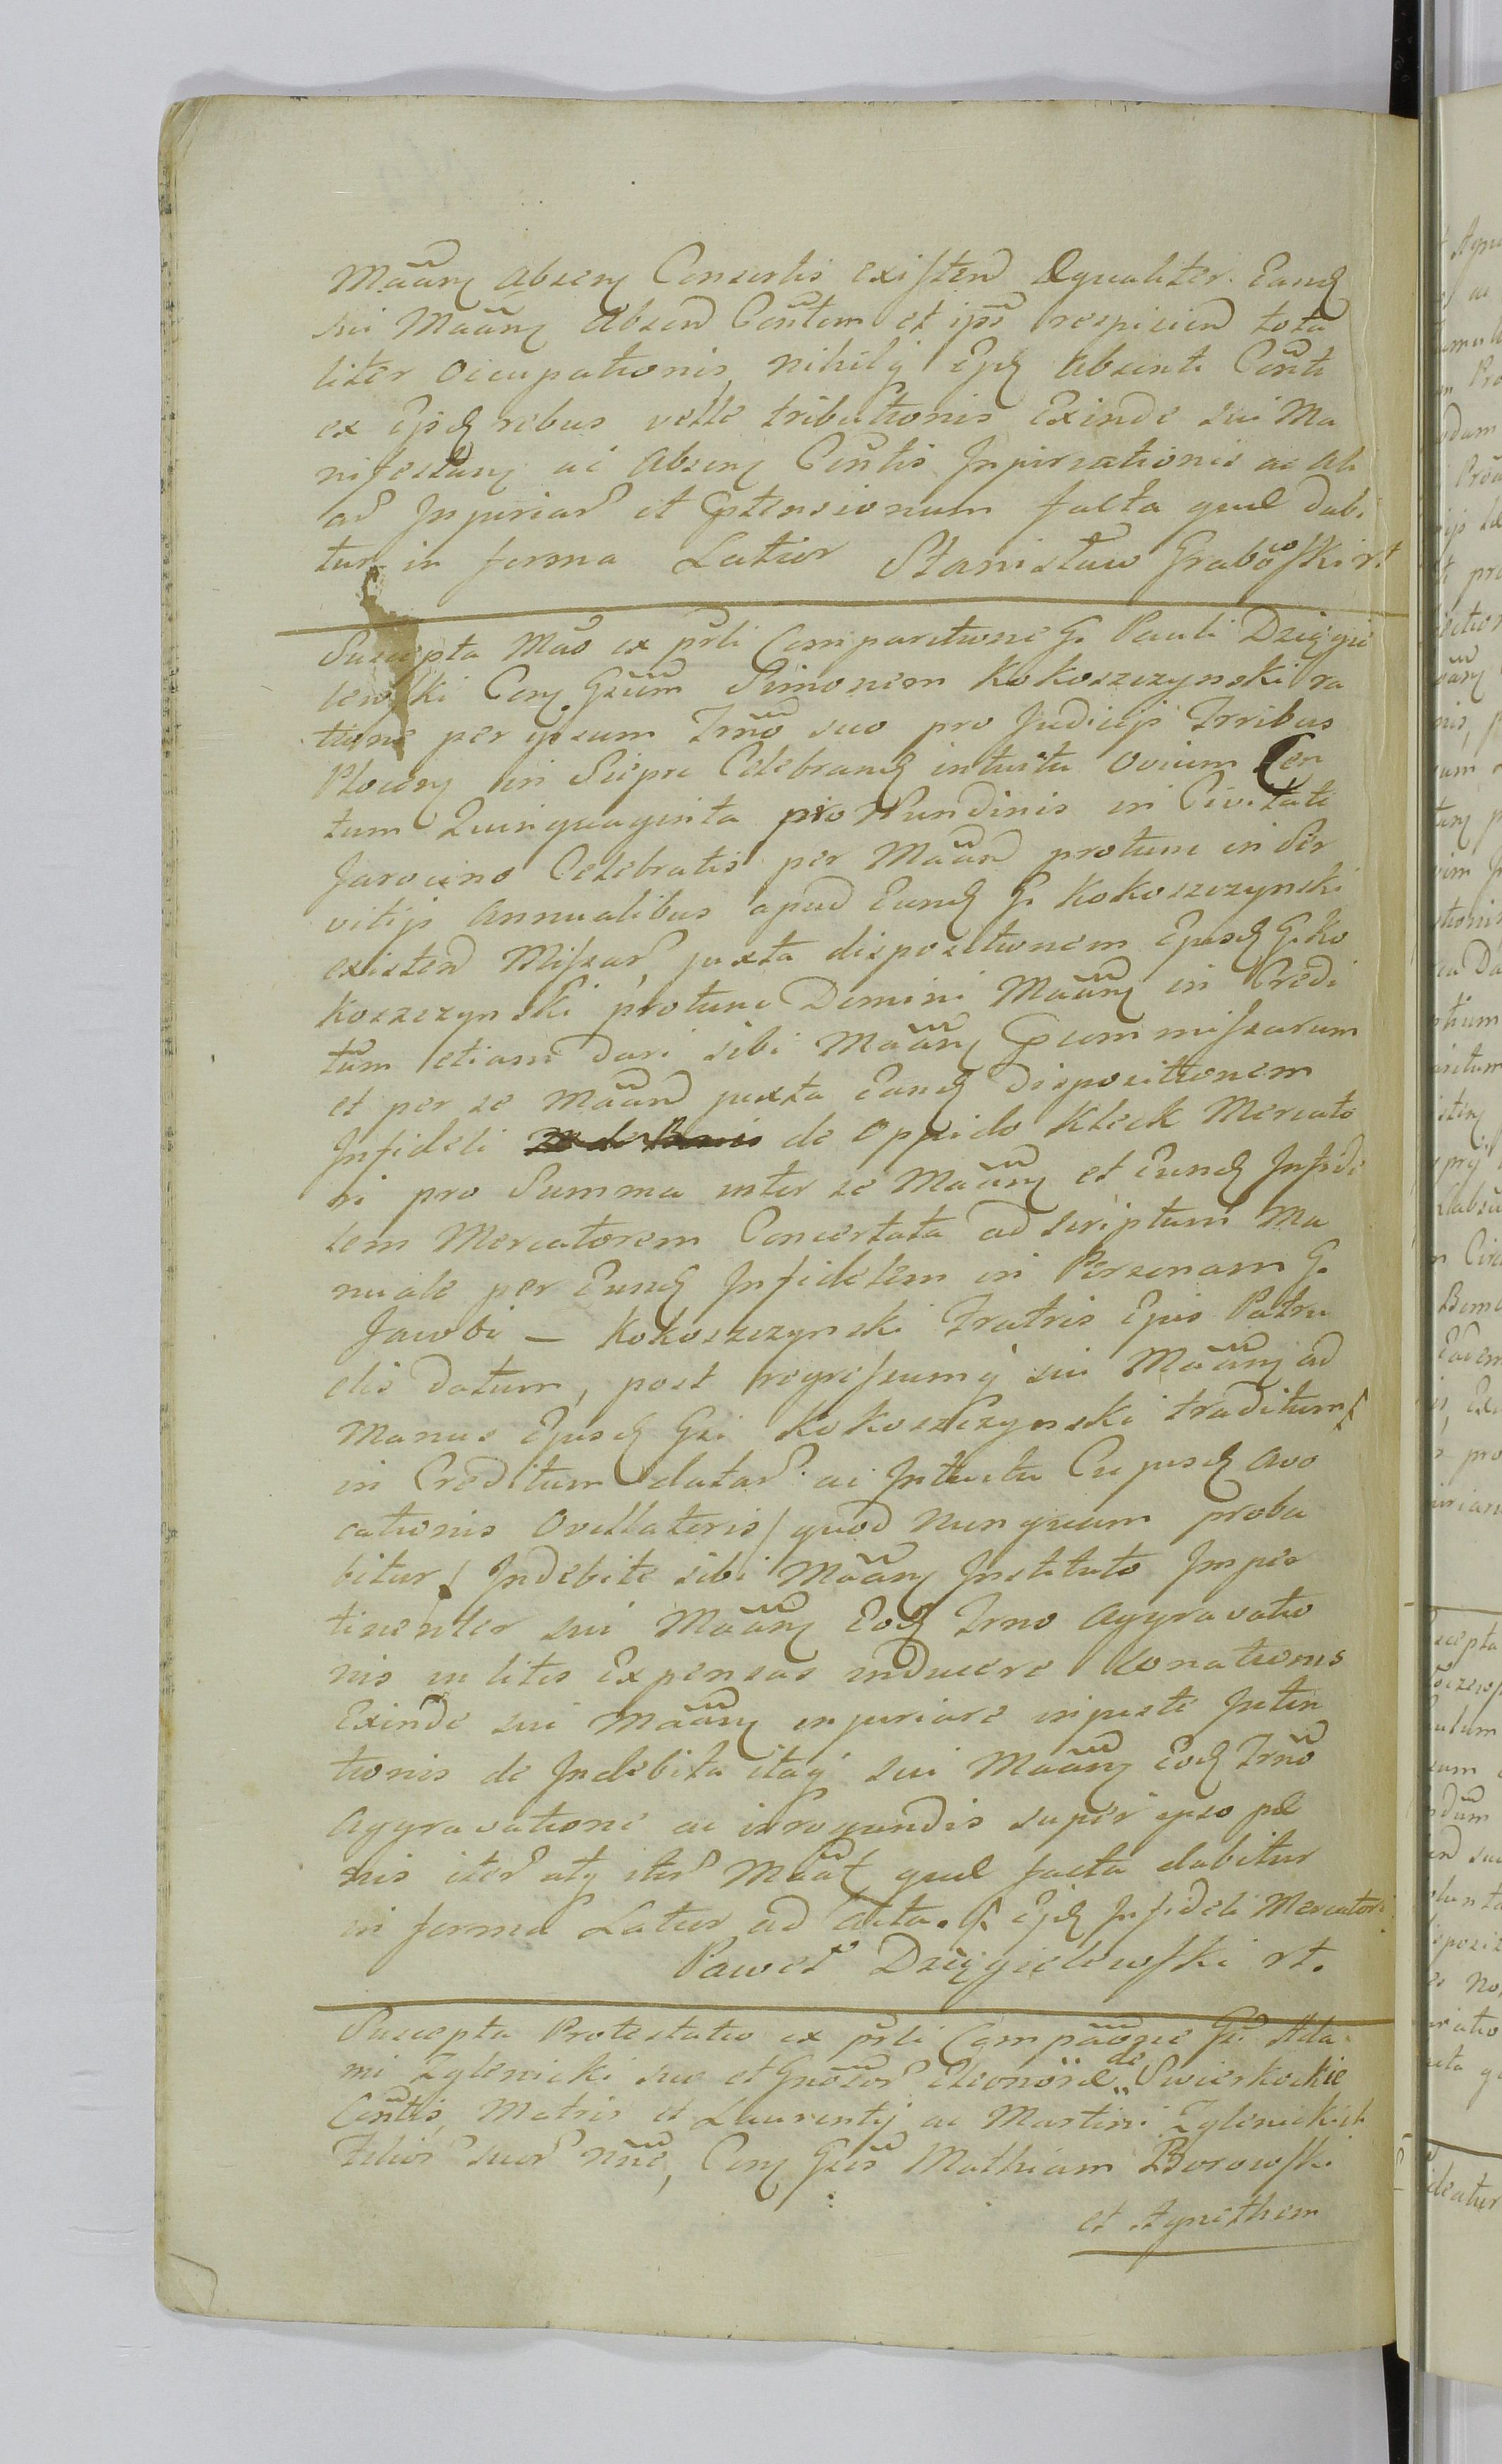 Mããnʒ absenʒ Consortis existenð Æqualiter Eandʒ
sui Mããnʒ absenð Cõñtem et ips̃ respicienð tota
liter occupationis, nihilqʒ Ejdʒ absenti Cõñti
ex Ejsdʒ rebus velle tributionis Exinde sui Ma
nifestanʒ ac absenʒ Cõñtis Injuriationis ac ali
ar̃ Injuriar̃ et Ꝓtensionum facta quæ dabi
tur in forma Latior Stanisław Grabowski rt
Suscepta Mão ex pr̃li Comparitione G. Pauli Dzięgie
lewski Conʒ Gr̃sum Simonem Kokoszczynski ra
tione per ipsum Trñõ suo pro Judicijs Trribus
Plocenʒ in Sieprc Celebrandʒ intuitu ovium Cen
tum Quinquaginta pro Nundinis in Civitate
Jarocino Celebratis per Mããnð protunc in Ser
vitijs annualibus apud Eundʒ G. Kokoszczynski
existenð Missar̃, juxta dispositionem Ejusdʒ G. Ko
koszczynski protunc Domini Mããnʒ in Credi
tum etiam dari sibi Mããnʒ Ꝓcommissarum
et per se Mããnð juxta Eandʒ dispositionem
Infideli de Oppido Kleck Mercato
ri pro Summa inter se Mããnʒ et Eundʒ Infide
lem Mercatorem Concertata ad scriptum Ma
nuale per Eundʒ Infidelem in Personam G.
Jacobi — Kokoszczynski Fratris Ejus Patru
elis datum, post regressumqʒ sui Mããnʒ ad
manus Ejusdʒ Gsi Kokoszczynski traditum
in Creditum datar̃ ac Intuitu Cujusdʒ avo
cationis Ovillatoris / quod nunquam proba
bitur / Indebite sibi Mããnʒ Instituto Imper
tinenter sui Mããnʒ Eodʒ Trno aggravatio
nis in litis Expensas inducere conationis
Exinde sui Mããnʒ injuriare injuste Inten
tionis de Indebita itaqʒ sui Mããnʒ Eodʒ Trñõ
Aggravatione ac irrogandis super ipso pæ
nis iter̃ atqʒ iter̃ Mããt quæ facta dabitur
in forma Latior ad acta. Ejdʒ Infideli Mercatori
Paweł Dzięgielewski rt.
Suscepta Protestatio ex pr̃li Compãõne Gr̃ Ada
mi Zglenicki suo et Gnõsor̃ Eleonoræ de Swierkockie
Cõñtis, Matris et Laurentij ac Martini Zglenickich
Filior̃ suor̃ nñẽ, Conʒ Gr̃s Mathiam Borowski
et Agnethem